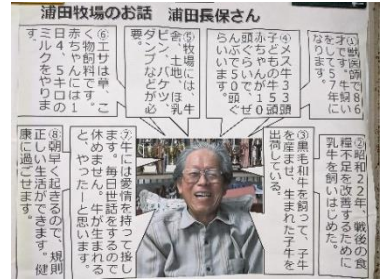 浦田牧場のお話　浦田長保さん
①獣医師で86
才です。牛飼い
をして57年に
なります。
②昭和22年、戦後の食
糧不足を改善するために
乳牛を飼いはじめた。
③黒毛和牛を飼って、子牛
を産ませ、生まれた子牛を
出荷している。
④メス牛33頭
子どもの牛5頭
赤ちゃんが10
頭ぐらいで、ぜ
んぶで50頭ぐ
らいいます。
⑤牧場には、牛
舎、土地、ほ乳
ビン、バケツ、
ダンプなどが必
要。
⑥エサは草、こ
く物飼料です。
赤ちゃんには1
日4.5キロの
ミルクをやりま
す。
⑦牛には愛情を持って接し
ます。毎日世話をするので
休めません。牛が生まれる
と、やったーと思います。
⑧朝早く起きるので、規則
正しい生活ができます。健
康に過ごせます。